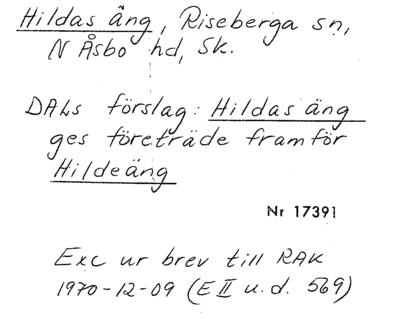 Hildas äng, Riseberga sn,
N Åsbo hd, Sk.
DALs förslag: Hildas äng
ges företräde framför
Hildeäng
Nr 17391
Exc ur brev till RAK
1970-12-09 (E II u.d. 569)